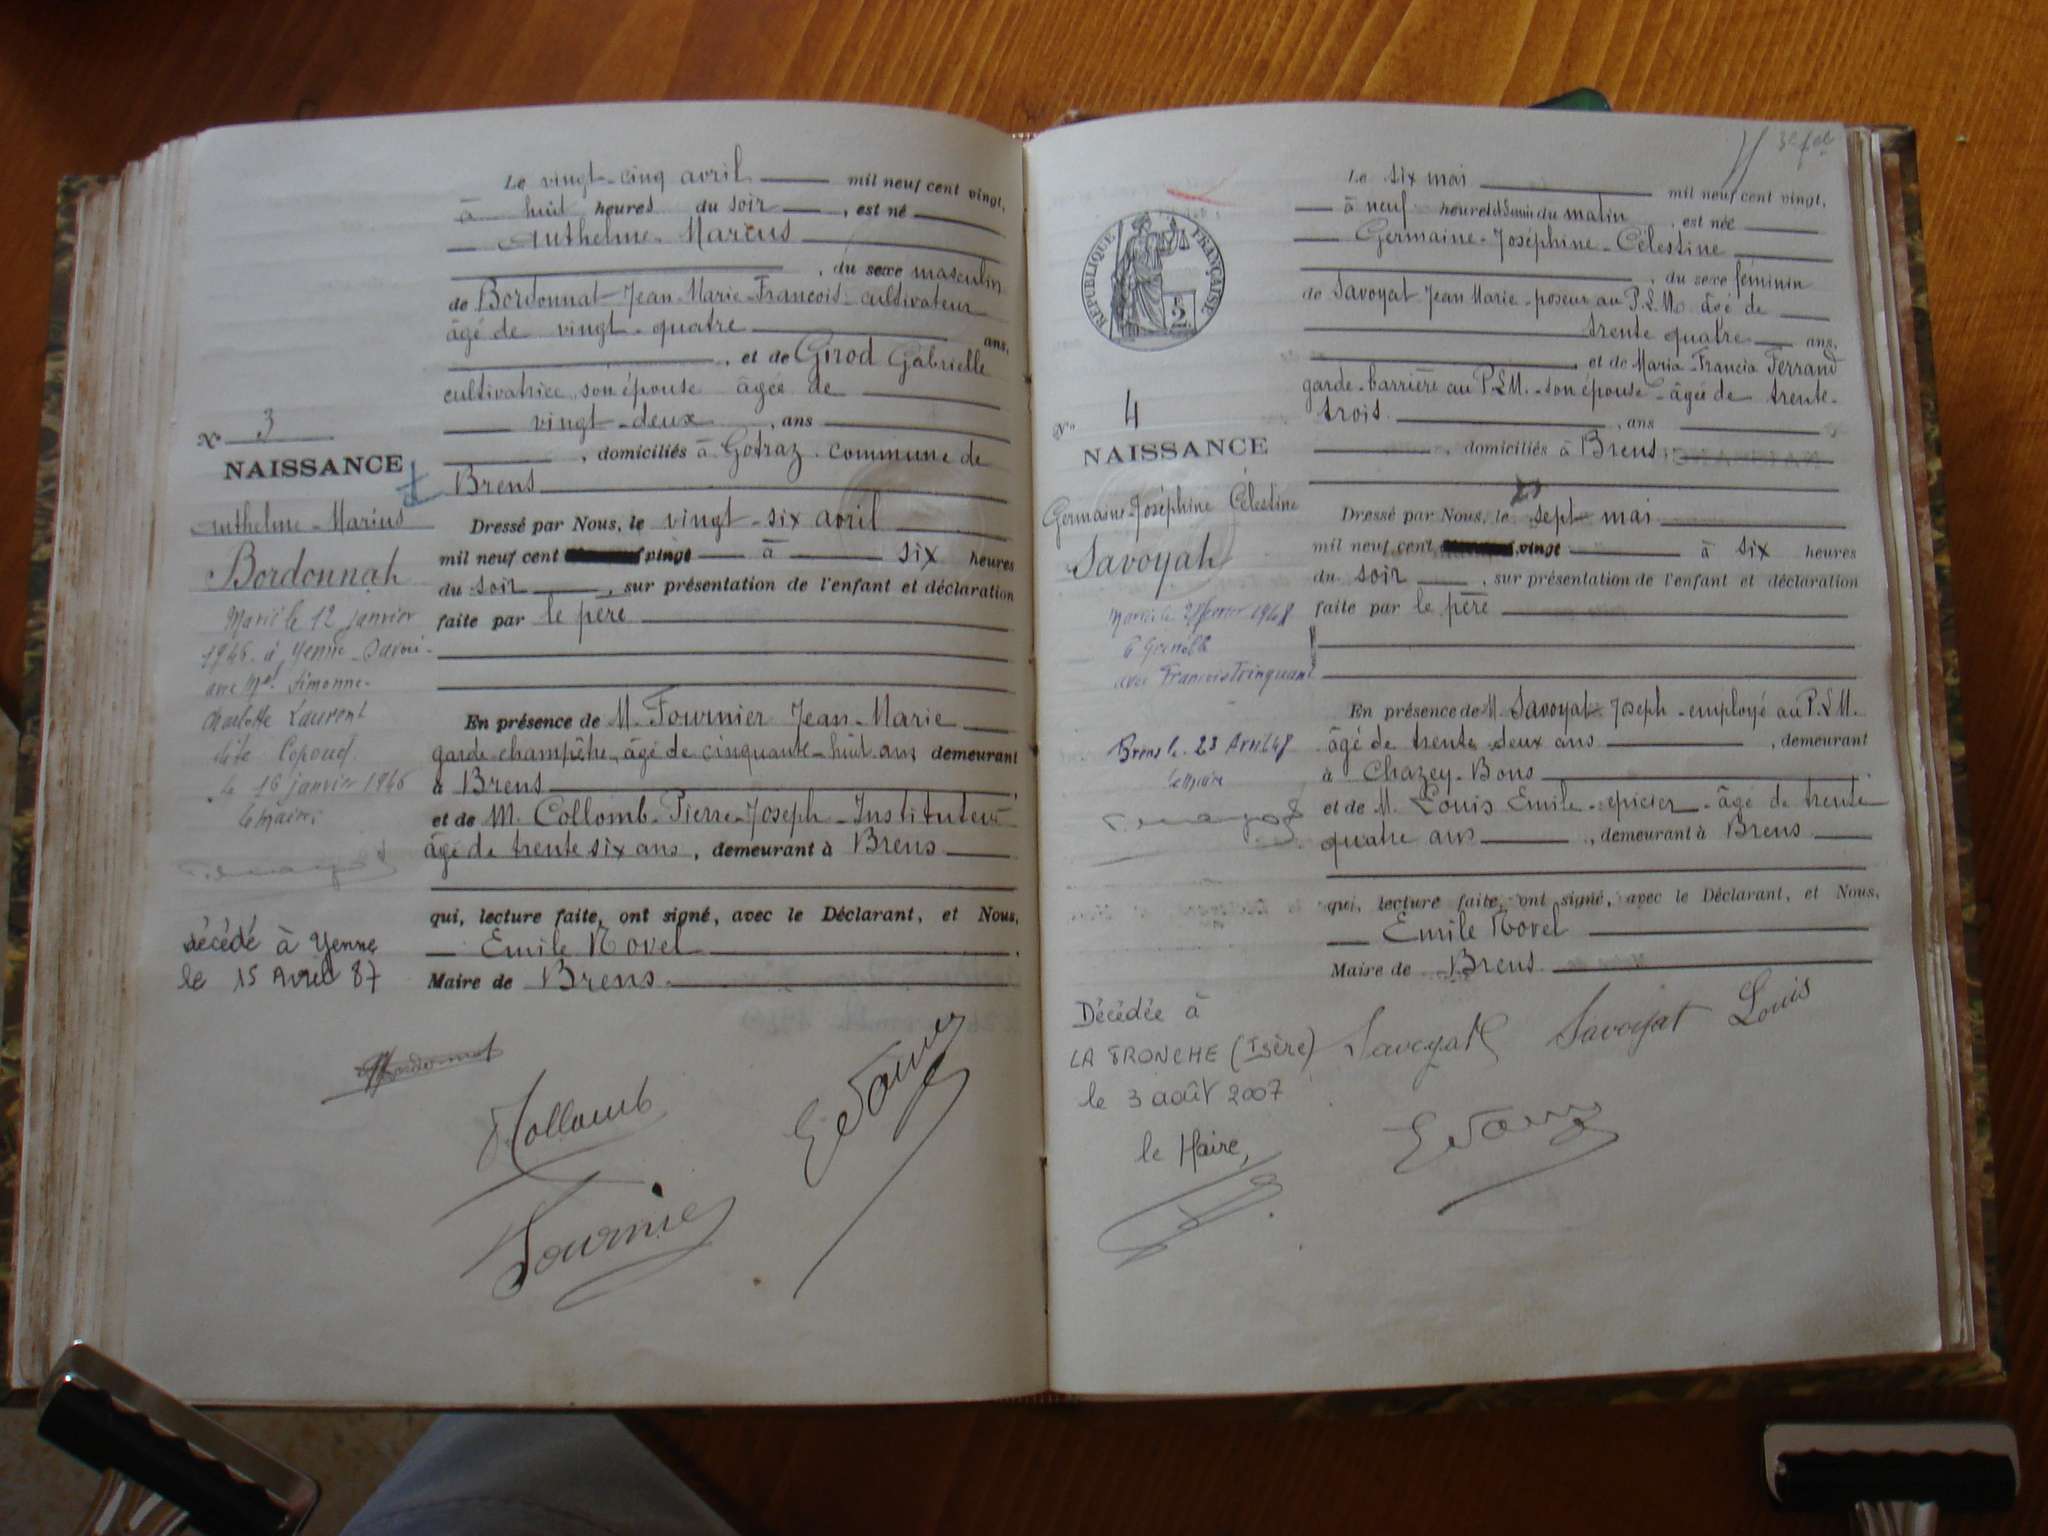 Le vingt-cinq avril mil neuf cent vingt,
à huit heures du soir, est né
Anthelme-Marius
, du sexe masculin
de Bordonnat Jean-Marie-François-cultivateur
âgé de vingt-quatre ans,
, et de Girod Gabrielle
cultivatrice, son épouse âgée de
vingt-deux, ans
, domiciliés à Gotraz. commune de
Brens
Dressé par Nous, le vingt-six avril
mil neuf cent vingt à six heures
du soir, sur présentation de l'enfant et déclaration
faite par le père
En présence de M. Fournier Jean-Marie
garde-champêtre, âgé de cinquante-huit ans demeurant
à Brens,
et de M. Collomb-Pierre-Joseph-Instituteur
âgé de trente six ans, demeurant à Brens
qui, lecture faite, ont signé, avec le Déclarant, et Nous,
Emile Novel,
Maire de Brens.
N° 3
NAISSANCE
Anthelme-Marius
Bordonnat
Marié le 12 janvier
1946 à Yenne-Savoie
avec Mlle Simonne-
Charlotte Laurent
le 16 janvier 1946
le maire,
Décédé à Yenne
le 15 Avril 87
Bordonnat
Collomb
Fournier
3e fel
Le six mai mil neuf cent vingt,
à neuf heures du matin, est née
Germaine-Joséphine-Célestine
, du sexe féminin
de Savoyat Jean Marie-poseur au P.L.M. âgé de
trente quatre ans,
, et de Maria-Francia Ferrand
garde-barrière au P.L.M.-son épouse-âgée de trente-
trois., ans
, domiciliés à Brens.
Dressé par Nous, le sept mai
mil neuf cent vingt à six heures
du soir, sur présentation de l'enfant et déclaration
faite par le père
En présence de M. Savoyat Joseph-employé au P.L.M.
âgé de trente deux ans, demeurant
à Chazey-Bons
et de M. Louis Emile-épicier-âgé de trente
quatre ans, demeurant à Brens
qui, lecture faite, ont signé, avec le Déclarant, et Nous,
Emile Novel
Maire de Brens
RÉPUBLIQUE FRANÇAISE
N° 4
NAISSANCE
Germaine-Joséphine Célestine
Savoyat
Mariée le février 1948
à Grenoble
avec Francis Trinquant
Brens le 23 Avril 48
le maire
Décédée à
LA TRONCHE (Isère)
le 3 août 2007
le Maire,
Savoyat Savoyat Louis